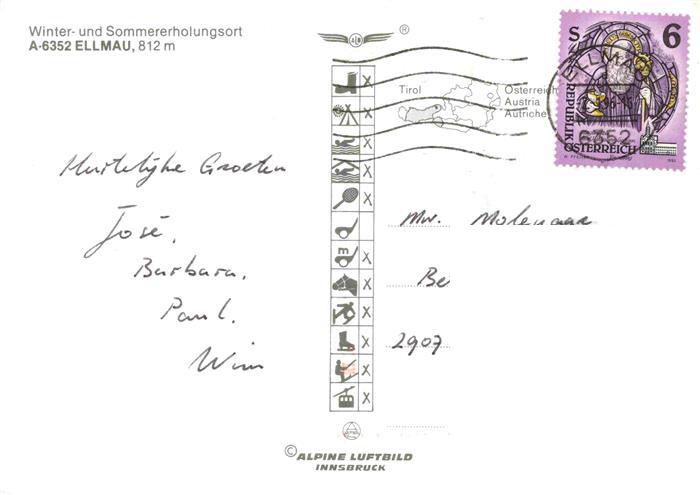 Winter- und Sommererholungsort
A-6352 ELLMAU, 812 m
®
S 6
REPUBLIK
ÖSTERREICH
ELLMAU
6352
Tirol
Österreich
Austria
Autriche
Hartelijke Groeten
José,
Barbara,
Paul,
Wim
x
x
x
x
x
m x
x
x
x
x
x
Mw. Molenaar
Be
2907
© ALPINE LUFTBILD
INNSBRUCK